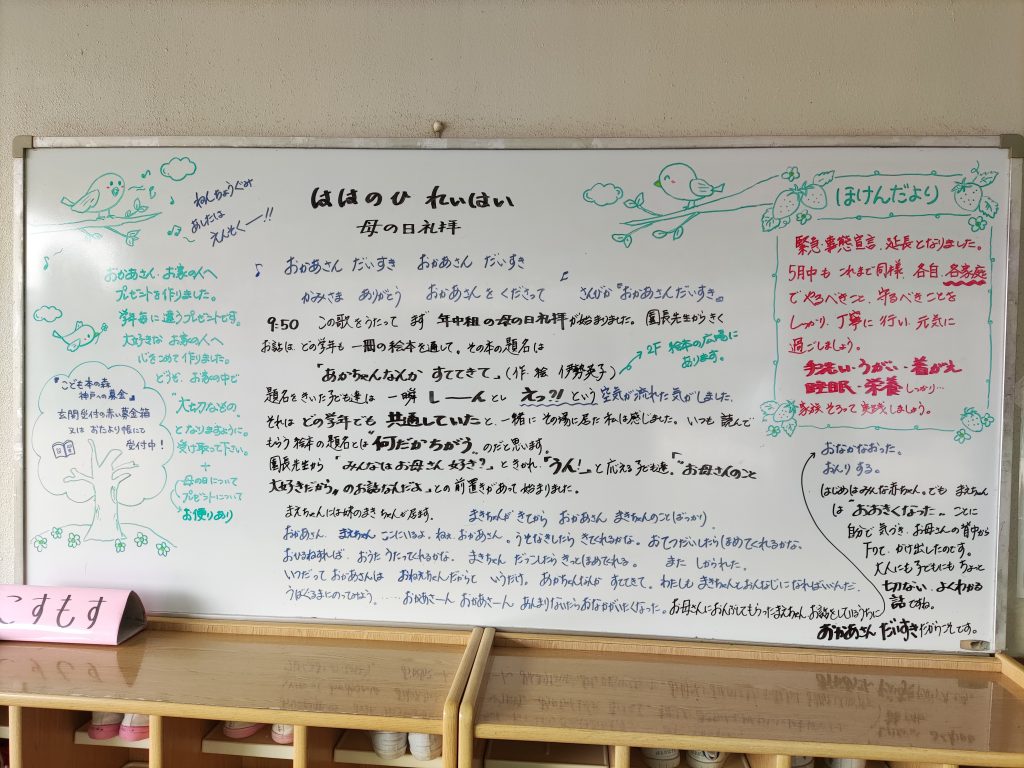 ははのひ れいはい
母の日礼拝
ねんちょうぐみ
あしたは
えんそくー!!
おかあさん だいすき おかあさん だいすき
かみさま ありがとう おかあさんを くださって さんびか『おかあさんだいすき』
9:50 この歌をうたって まず 年中組の母の日礼拝が始まりました。園長先生からきく
お話は どの学年も 一冊の絵本を通して。その本の題名は
『あかちゃんなんか すててきて』(作・絵 伊勢英子)
2F 絵本の広場に
あります。
題名をきいた子ども達は 一瞬 しーーんとし えっ?! という 空気が流れた気がしました。
それは どの学年でも 共通していたと、一緒に その場に居た 私は感じました。いつも 読んで
もらう 絵本の題名とは 何だかちがう のだと思います。
園長先生から 「みんなはお母さん 好き?」と きかれ、「うん!」と 応える 子ども達。「"お母さんのこと
大好きだから" のお話なんだよ」との 前置きがあって 始まりました。
まえちゃんには妹のまきちゃんが居ます。 まきちゃんが きてから おかあさん まきちゃんのことばっかり
おかあさん、まえちゃん ここにいるよ。ねえ、おかあさん。うそなきしたら きてくれるかな。おてつだいしたらほめてくれるかな。
おひるねすれば おうた うたってくれるかな。 まきちゃん だっこしたら きっとほめてくれる。 また しかられた。
いつだって おかあさんは おねえちゃんだからって いうだけ。あかちゃんなんか すててきて。わたしも まきちゃんとおんなじになればいいんだ。
うばぐるまにのってひゅう。……おかあさーん おかあさーん あんまりないたらおなかがいたくなった。お母さんにおんぶしてもらったまえちゃん、お話をしているうちに
おなかなおった。
おんりする。
はじめはみんな赤ちゃん。でも まえちゃん
は "おおきくなった" ことに
自分で気づき、お母さんの背中から
下りて、かけ出したのです。
大人にも子どもにも ちょっと
切ない、よくわかる
話ですね。
おかあさん だいすき だからこそです。
おかあさん、お家の人へ
プレゼントを作りました。
学年毎に違うプレゼントです。
大好きな お家の人へ
心をこめて作りました。
どうぞ、お家の中で
"大切なもの"
となりますように。
受け取って下さい。
+
母の日について
プレゼントについて
お便りあり
『こども本の森
神戸への募金』
玄関受付の赤い募金箱
又は おたより帳にて
受付中!
ほけんだより
緊急事態宣言、延長となりました。
5月中も これまで同様、各自、各家庭
でやるべきこと、守るべきことを
しっかり、丁寧に 行い、元気に
過ごしましょう。
手洗い・うがい・着がえ
睡眠・栄養 しっかり…
家族 そろって 実践しましょう。
こすもす